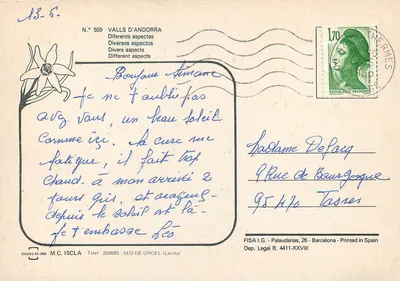 13.6.
N.º 559 VALLS D'ANDORRA
Diferents aspectes
Diversos aspectos
Divers aspects
Different aspects
Bonjour Simone
je ne t'oublie pas
avez vous, un beau soleil
comme ici. la cure me
fatigue, il fait trop
chaud. à mon arrivée 2
jours gris, et
depuis le soleil est là.
je t'embrasse Léo
M.C. ISCLA - Telef. 350085 - SEO DE URGEL (Lérida)
1,70
REPUBLIQUE FRANÇAISE
THERMES
Madame Delacq
9 Rue de Bourgogne
95470
FISA I.G. - Palaudarias, 26 - Barcelona - Printed in Spain
Dep. Legal B. 4411-XXVIII